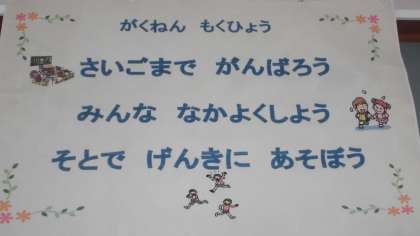 がくねん もくひょう
さいごまで がんばろう
みんな なかよくしよう
そとで げんきに あそぼう